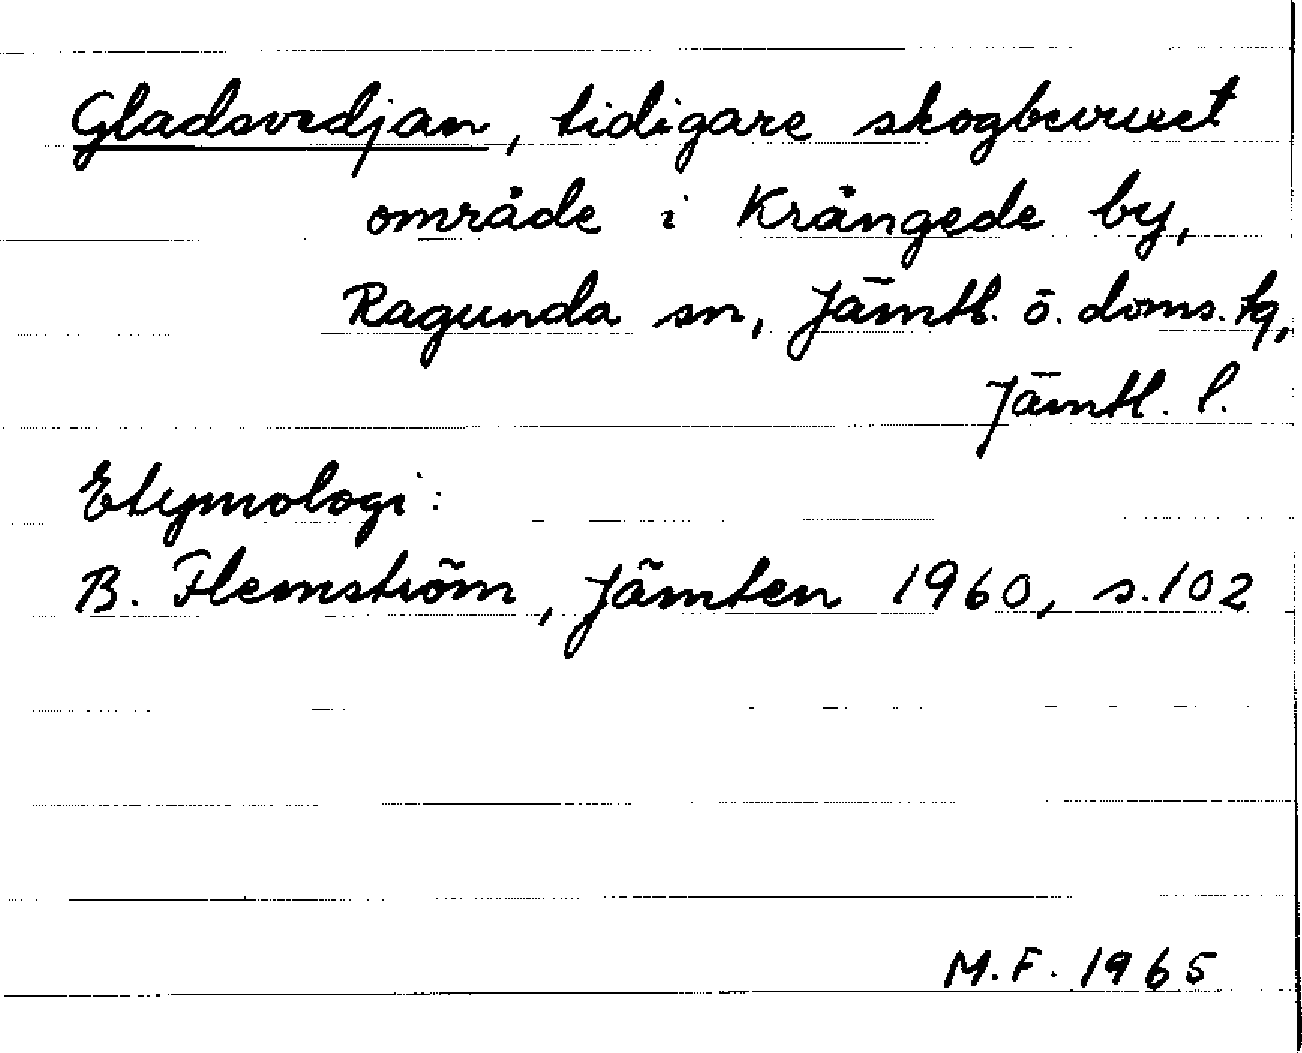 Gladsvedjan, tidigare skogbevuxet
område i Krångede by,
Ragunda sn, Jämtl. ö. doms. tg,
Jämtl. l.
Etymologi:
B. Flemström, Jämten 1960, s. 102
M.F. 1965